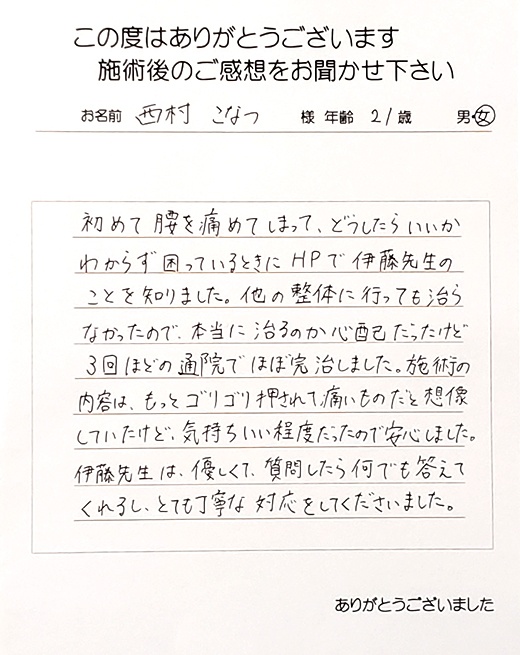 この度はありがとうございます
施術後のご感想をお聞かせ下さい
お名前 西村 こなつ 様 年齢 21歳 男・女
初めて腰を痛めてしまって、どうしたらいいか
わからず困っているときにHPで伊藤先生の
ことを知りました。他の整体に行っても治ら
なかったので、本当に治るのか心配だったけど
3回ほどの通院でほぼ完治しました。施術の
内容は、もっとゴリゴリ押されて痛いものだと想像
していたけど、気持ちいい程度だったので安心しました。
伊藤先生は、優しくて、質問したら何でも答えて
くれるし、とても丁寧な対応をしてくださいました。
ありがとうございました